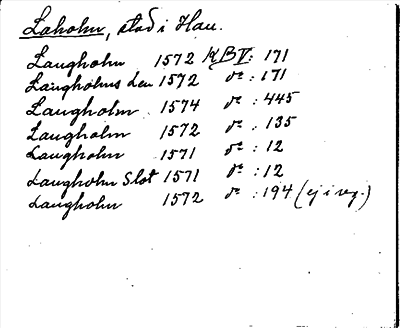 Laholm, stad i Hall.
Laugholm 1572 KB V: 171
Laugholms Len 1572 do : 171
Laugholm 1574 do : 445
Laugholm 1572 do : 135
Laugholm 1571 do : 12
Laugholm Slot 1571 do : 12
Laugholm 1572 do : 194 (ej i reg.)